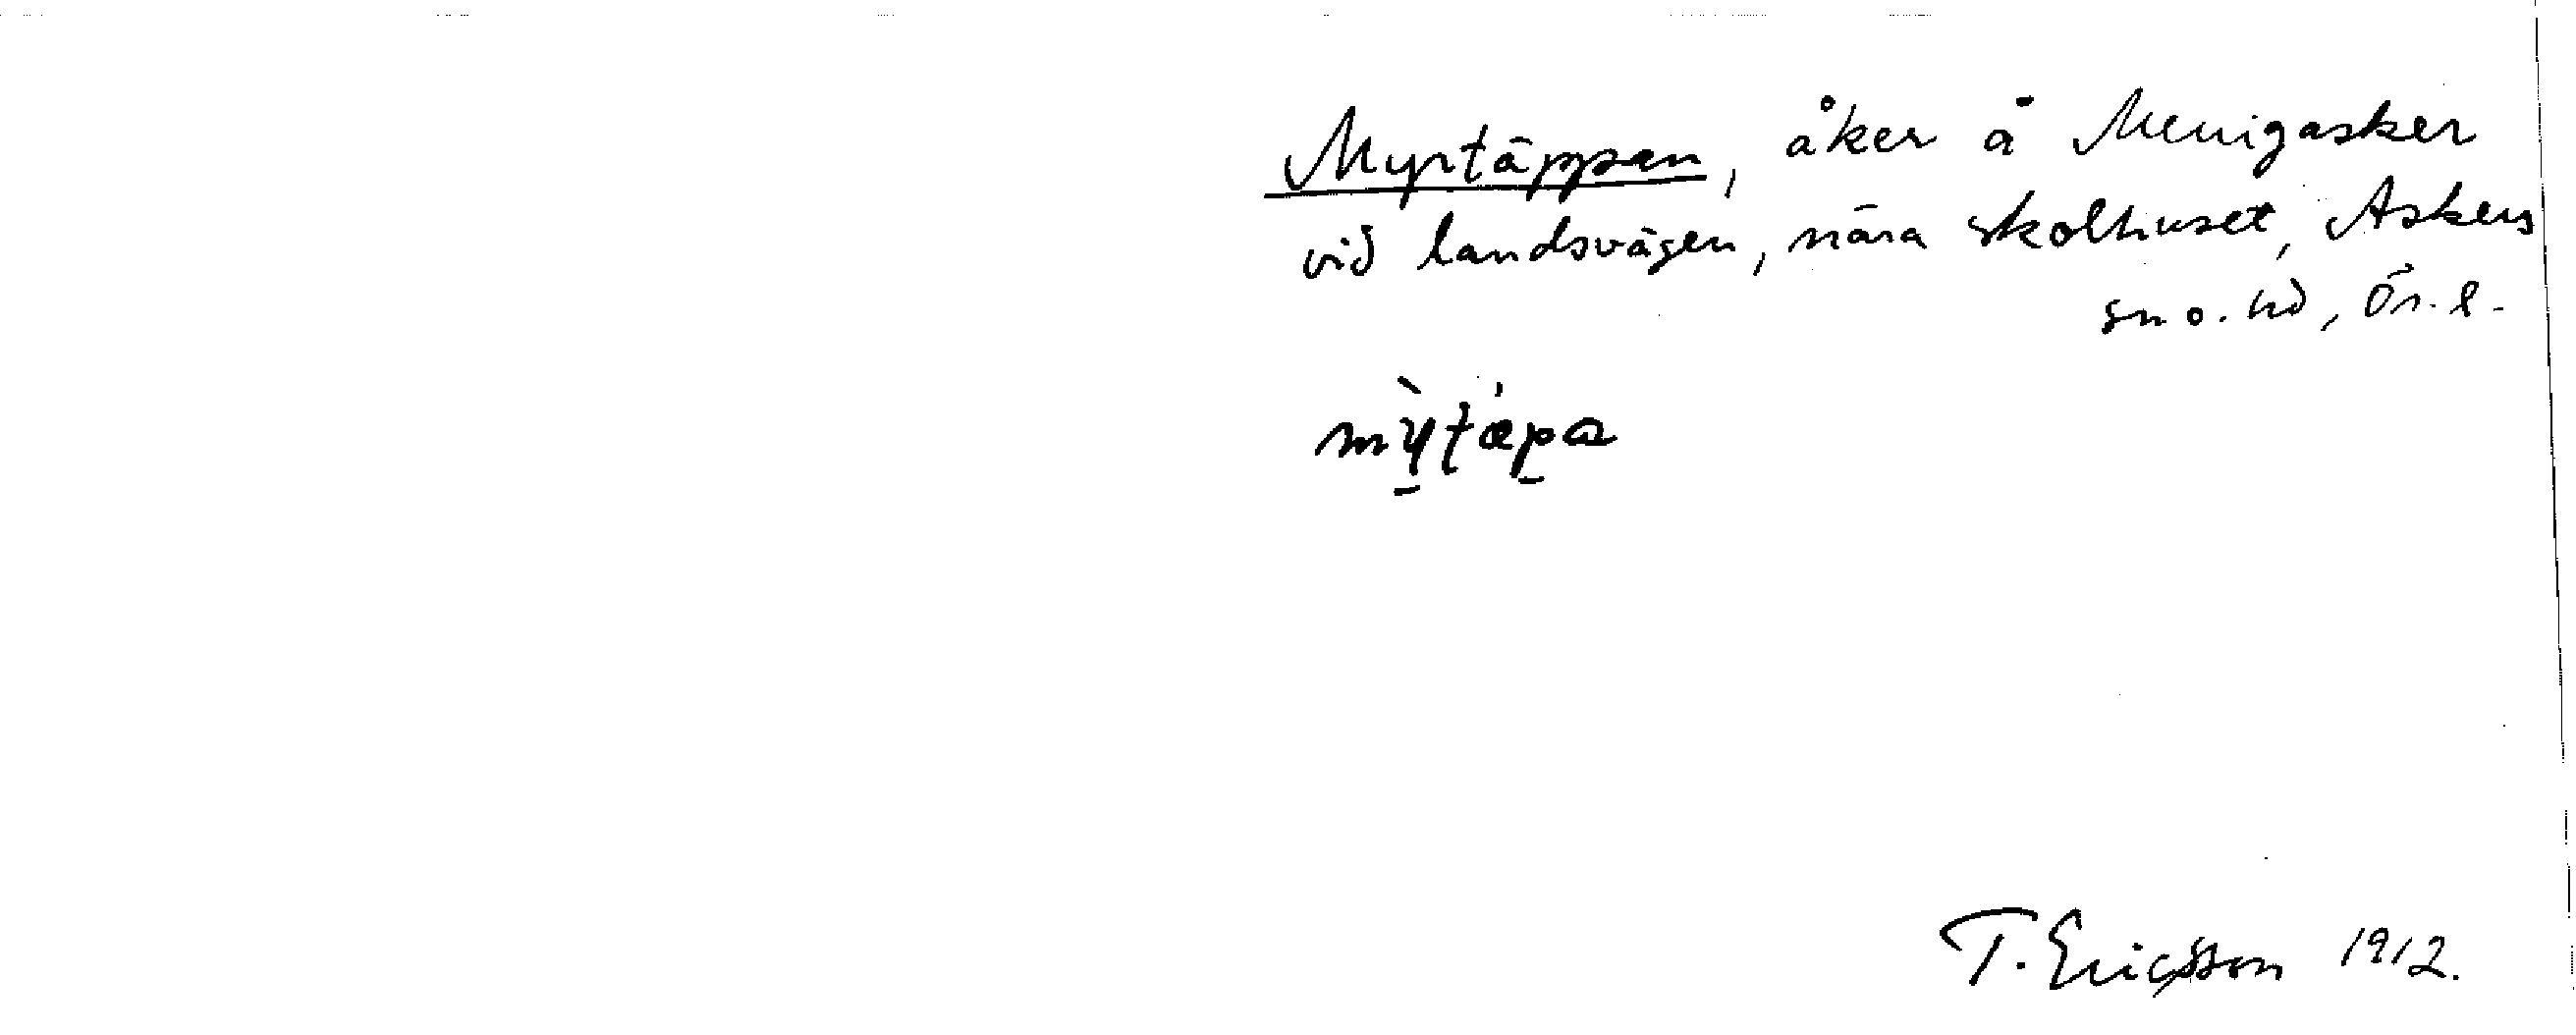 Myrtäppan, åker å Menigasker
vid landsvägen, nära skolhuset, Askers
sn o. hd, Ör. l.
mỳtǽpa
T. Ericsson 1912.